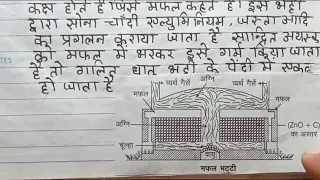 कक्ष होते हैं जिसे मफल कहते हैं। इस भट्टी
द्वारा सोना चाँदी एल्युमिनियम, जस्ता आदि
का प्रगलन कराया जाता है सान्द्रित अयस्क
को मफल में भरकर इसे गर्म किया जाता
है तो गलित धातु भट्टी के पेंदी में एकत्र
हो जाता है
व्यर्थ गैसें अग्नि व्यर्थ गैसें
मफल मफल
अग्नि (ZnO + C)
का अस्तर
चूल्हा वायु
मफल भट्टी